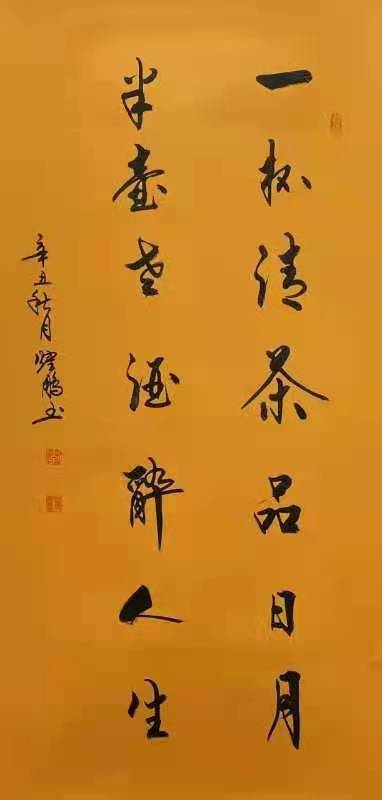 一杯清茶品日月
半壶老酒醉人生
辛丑秋月耀鹏书